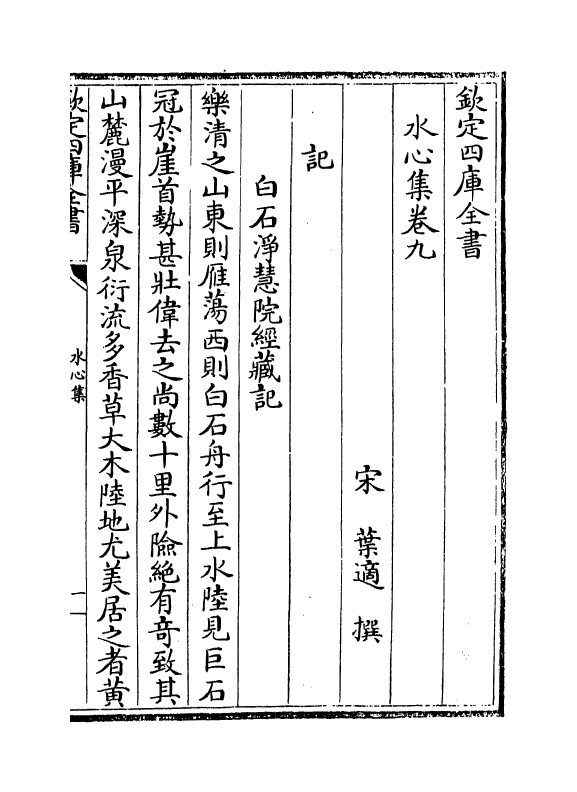 欽定四庫全書
水心集卷九
宋 葉適 撰
記
白石淨慧院經藏記
樂清之山東則雁蕩西則白石舟行至上水陸見巨石
冠於崖首勢甚壯偉去之尚數十里外險絕有竒致其
山麓漫平深泉衍流多香草大木陸地尤美居之者黃
欽定四庫全書
水心集
一